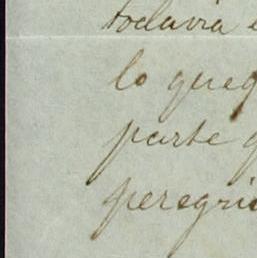 todavia
lo que
parte
peregri